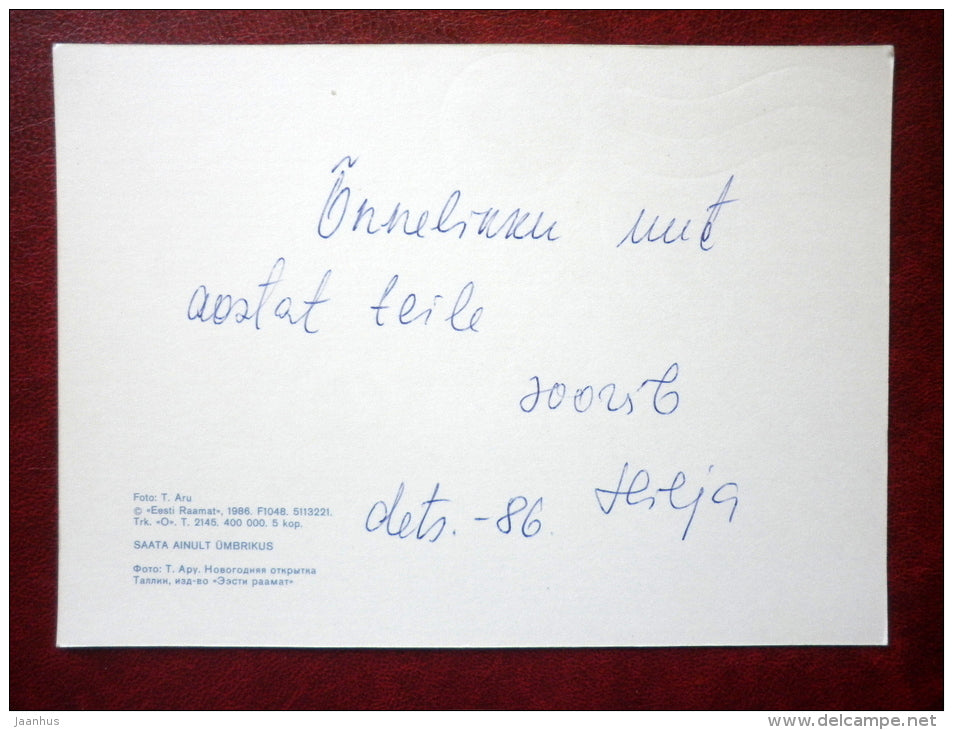 Õnnelikku uut
aastat teile
soovib
Hilja
dets. -86
Foto: T. Aru
© «Eesti Raamat», 1986. F1048. 5113221.
Trk. «O». T. 2145. 400 000. 5 kop.
SAATA AINULT ÜMBRIKUS
Фото: Т. Ару. Новогодняя открытка
Таллин, изд-во «Ээсти раамат»
Jaanhus
www.delcampe.net